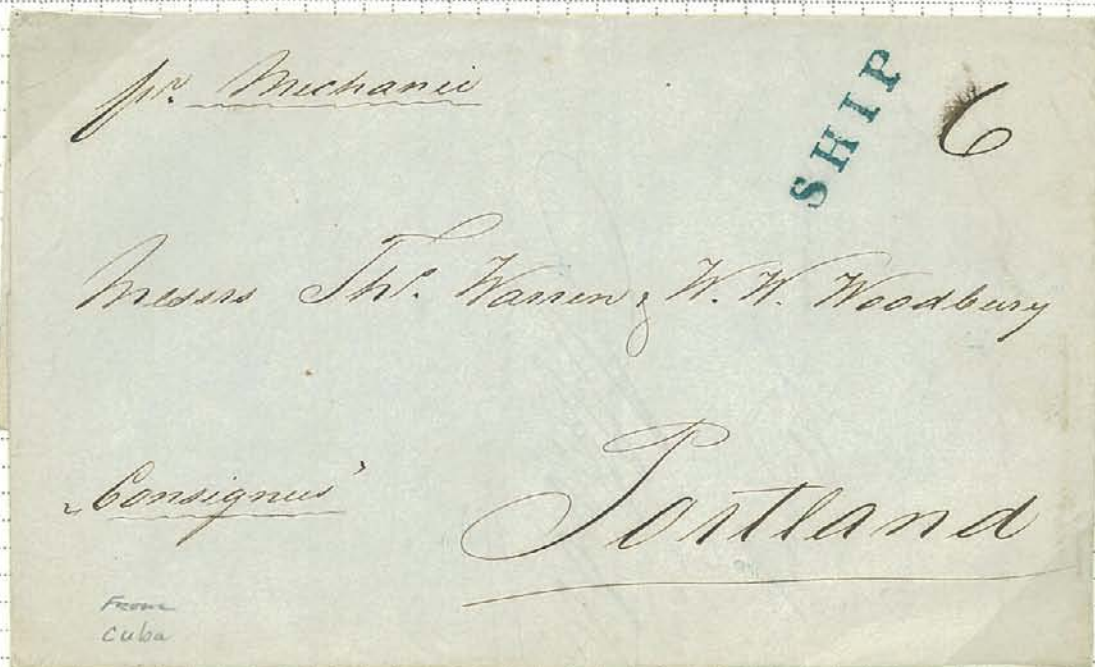 pr. Mechanic
SHIP
6
Messrs Thos. Warren & W. W. Woodbury
"Consignees"
Portland
From
Cuba